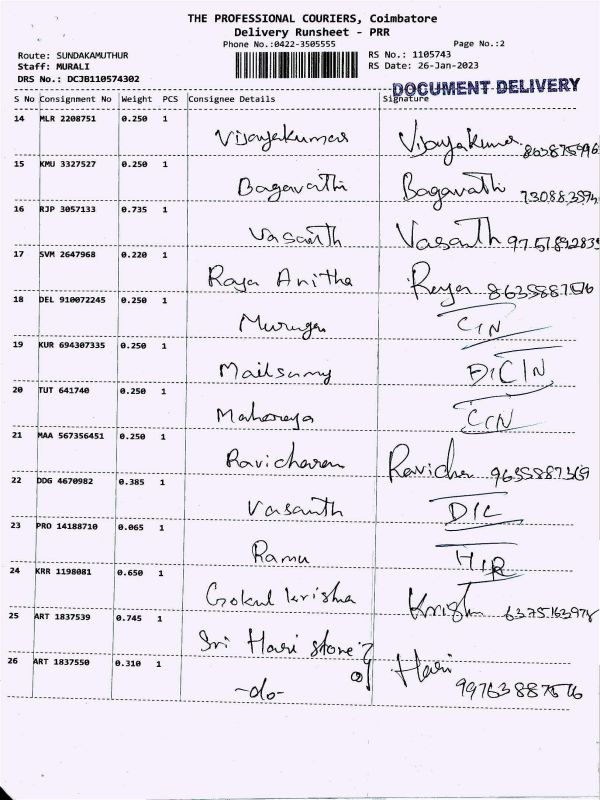 THE PROFESSIONAL COURIERS, Coimbatore
Delivery Runsheet - PRR
Phone No.:0422-3505555 Page No.:2
Route: SUNDAKAMUTHUR RS No.: 1105743
Staff: MURALI RS Date: 26-Jan-2023
DRS No.: DCJB110574302
DOCUMENT DELIVERY
S No Consignment No Weight PCS Consignee Details Signature
14 MLR 2208751 0.250 1
Vijayakumar Vijayakumar
15 KMU 3327527 0.250 1
Bagavathi Bagavathi
16 RJP 3057133 0.735 1
Vasanth Vasanth
17 SVM 2647968 0.220 1
Raja Anitha Raja
18 DEL 910072245 0.250 1
Murugan CIN
19 KUR 694307335 0.250 1
Mailsamy DICIN
20 TUT 641740 0.250 1
Maharaja CIN
21 MAA 567356451 0.250 1
Ravicharan 9635887369
22 DDG 4670982 0.385 1
Vasanth DIL
23 PRO 14188710 0.065 1
Ramu HIR
24 KRR 1198081 0.650 1
Gokul krisha 6375163978
25 ART 1837539 0.745 1
Sri Hari stone
26 ART 1837550 0.310 1
-do- Hari